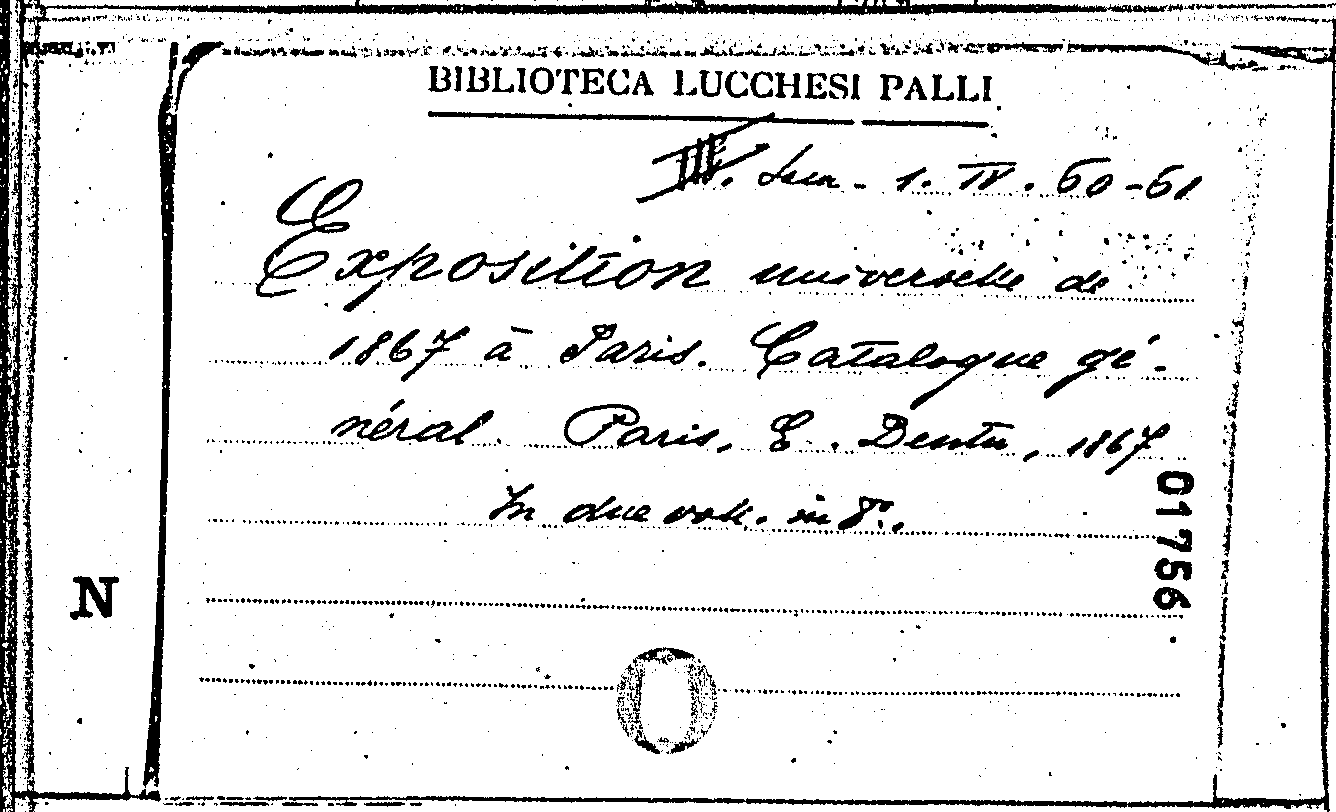 BIBLIOTECA LUCCHESI PALLI
1. IV. 60-61
Exposition universelle de
1867 à Paris. Catalogue gé-
néral. Paris, E. Dentu, 1867
In due voll. in 8°.
01756
N